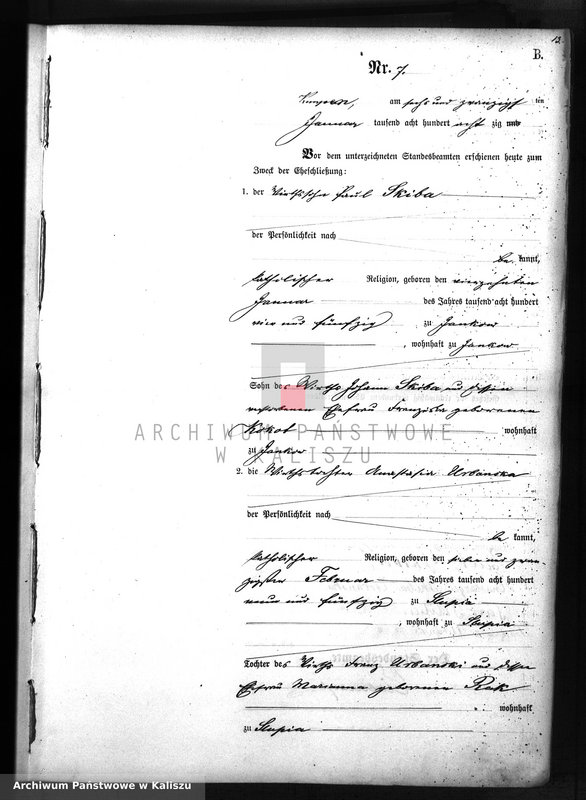 13
B.
Nr. 7.
am sechs und zwanzigsten
Januar tausend acht hundert acht zig und
Vor dem unterzeichneten Standesbeamten erschienen heute zum
Zweck der Eheschließung:
1. der Wirthssohn Paul Skiba
der Persönlichkeit nach
be kannt,
katholischer Religion, geboren den vierzehnten
Januar des Jahres tausend acht hundert
vier und fünfzig zu Jankow
, wohnhaft zu Jankow
Sohn des Wirths Johann Skiba und dessen
verstorbenen Ehefrau Franziska geborenen
Kokot wohnhaft
zu Jankow
2. die Wirthstochter Anastasia Urbanska
der Persönlichkeit nach
be kannt,
katholischer Religion, geboren den sieben und zwan-
zigsten Februar des Jahres tausend acht hundert
neun und fünfzig zu Slupia
, wohnhaft zu Slupia
Tochter des Wirths Franz Urbanski und dessen
Ehefrau Marianna geborenen Rak
wohnhaft
zu Slupia
ARCHIWUM PAŃSTWOWE
W KALISZU
Archiwum Państwowe w Kaliszu